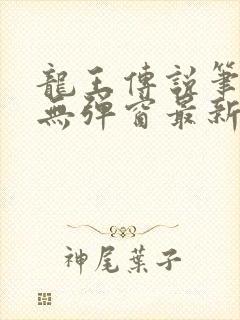 龍王傳說筆
無彈窗最新
神尾葉子